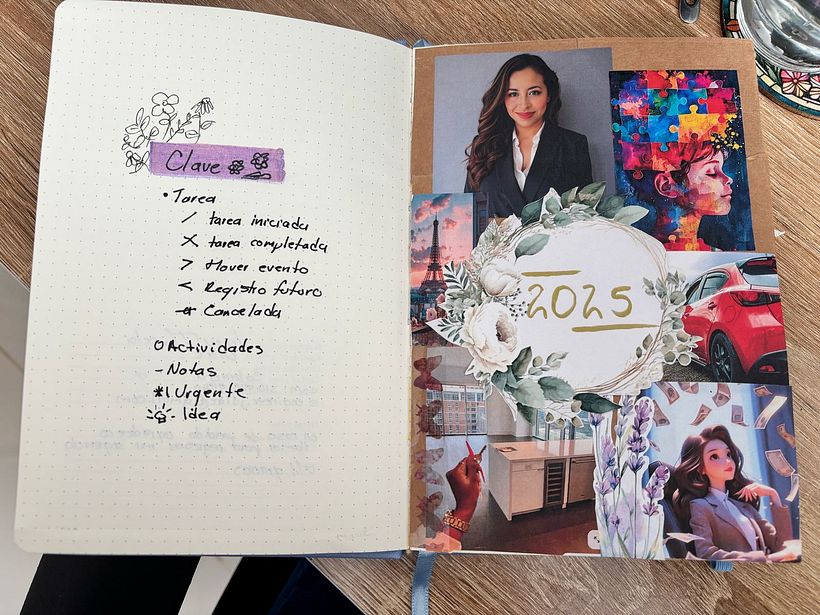 Clave
• Tarea
/ tarea iniciada
X tarea completada
> Mover evento
< Registro futuro
Cancelada
O Actividades
- Notas
*! Urgente
- Idea
2025